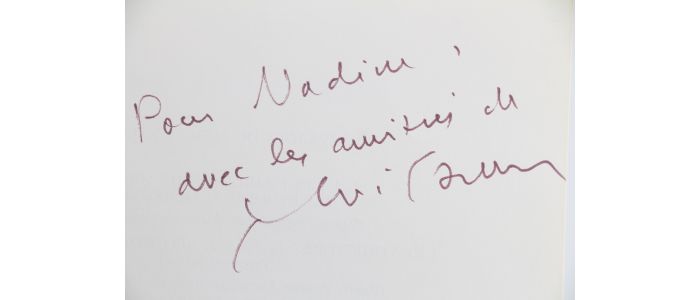 Pour Nadine,
avec les amitiés de